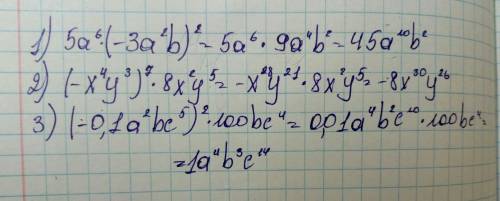 1) 5a⁶·(-3a²b)² = 5a⁶ · 9a⁴b² = 45a¹⁰b²
2) (-x⁴y³)⁷ · 8x²y⁵ = -x²⁸y²¹ · 8x²y⁵ = -8x³⁰y²⁶
3) (-0,1a²bc⁵)² · 100bc⁴ = 0,01a⁴b²c¹⁰ · 100bc⁴ =
= 1a⁴b³c¹⁴